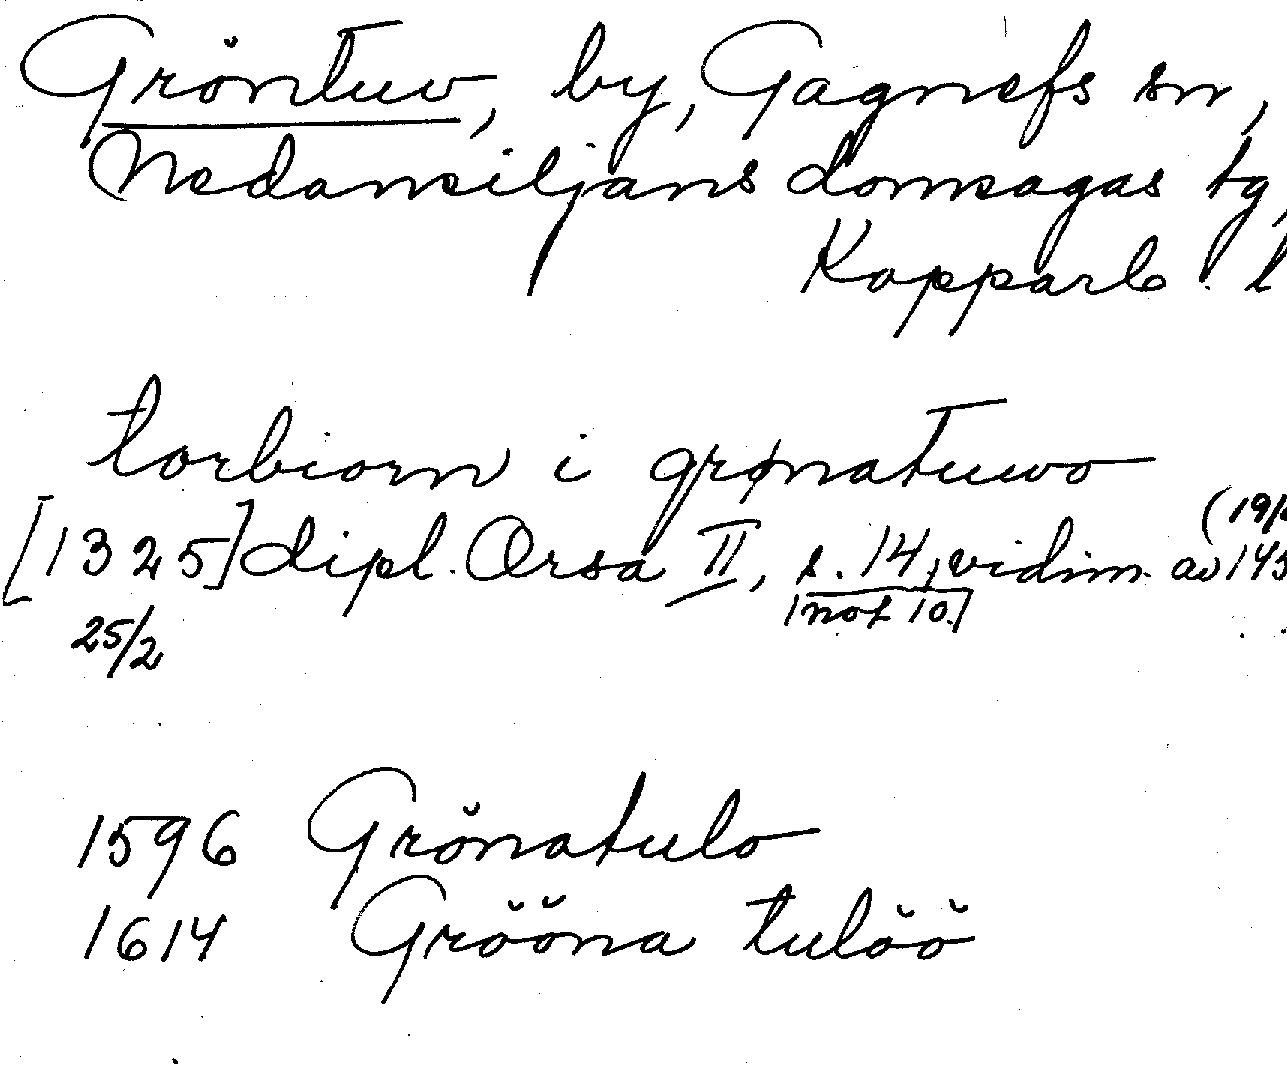 Gröntuv, by, Gagnefs sn,
Nedansiljans domsagas tg,
Kopparb. l
torbiorn i grønatuwo
[1325] dipl. Orsa II, s. 14, vidim. av
not 10.
25/2
1596 Grönatulo
1614 Grööna tulöö